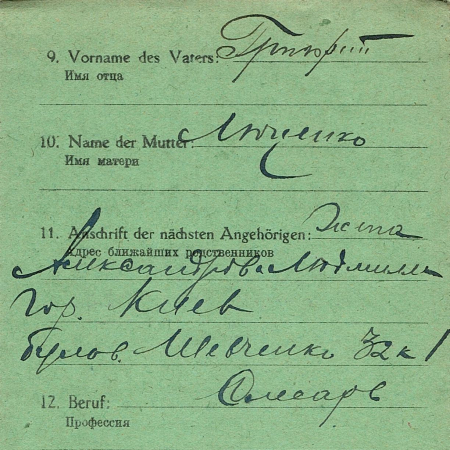 9. Vorname des Vaters: Григорий
Имя отца
10. Name der Mutter: Люценко
Имя матери
11. Anschrift der nächsten Angehörigen: Жена
Адрес ближайших родственников
Александрова Людмила
гор. Киев
булов. Шевченко 32 к 1
12. Beruf: Слесарь
Профессия